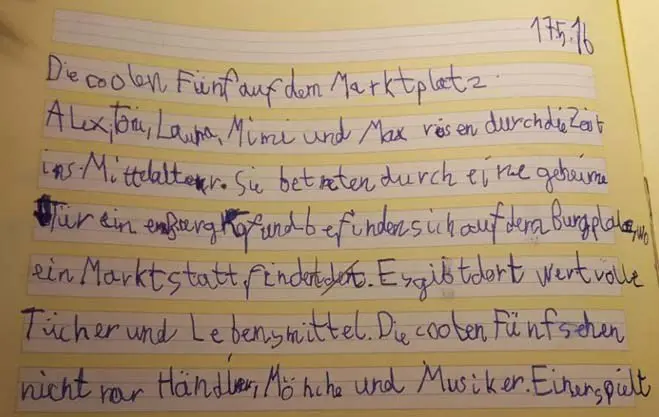 17.5.16
Die coolen Fünf auf dem Marktplatz.
Alex, Toni, Launa, Mimi und Max risen durch die Zeit
ins Mittelalter. Sie betreten durch eine geheime
Tür ein und befinden sich auf dem Burgplatz, wo
ein Marktstatt findet. Es gibt dort wertvolle
Tücher und Lebensmittel. Die coolen Fünf sehen
nicht nur Händler, Mönche und Musiker. Einer spielt